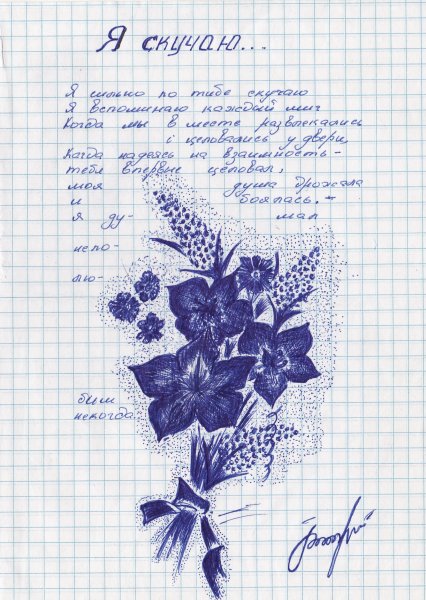 Я скучаю...
Я сильно по тибе скучаю
Я вспоминаю каждый миг
Когда мы в месте развлекались
і целовались у двери,
Когда надеясь на взаимность-
тебя впервые целовал,
моя душа дрожала
и боялась. -
я ду- мал
непо-
лю-
бил
некогда.